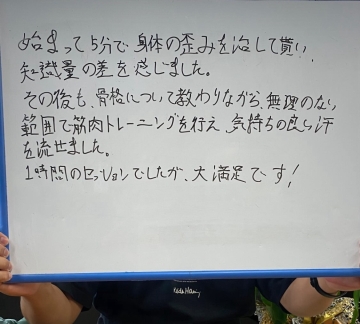 始まって5分で身体の歪みを治して貰い、
知識量の差を感じました。
その後も、骨格について教わりながら、無理のない
範囲で筋肉トレーニングを行え、気持ちの良い汗
を流せました。
1時間のセッションでしたが、大満足です!